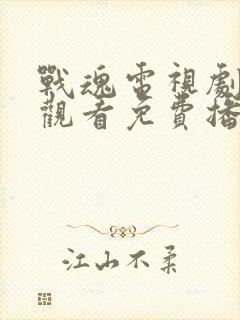 戰魂電視劇
觀看免費播
江山不柔